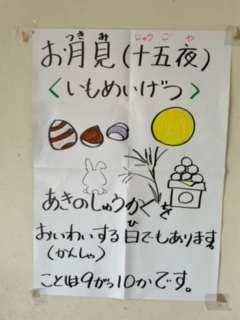 つき み じゅう ご や
お月見(十五夜)
<いもめいげつ>
あきのしゅうかくを
ひ
おいわいする日でもあります。
(かんしゃ)
ことは9がつ10かです。